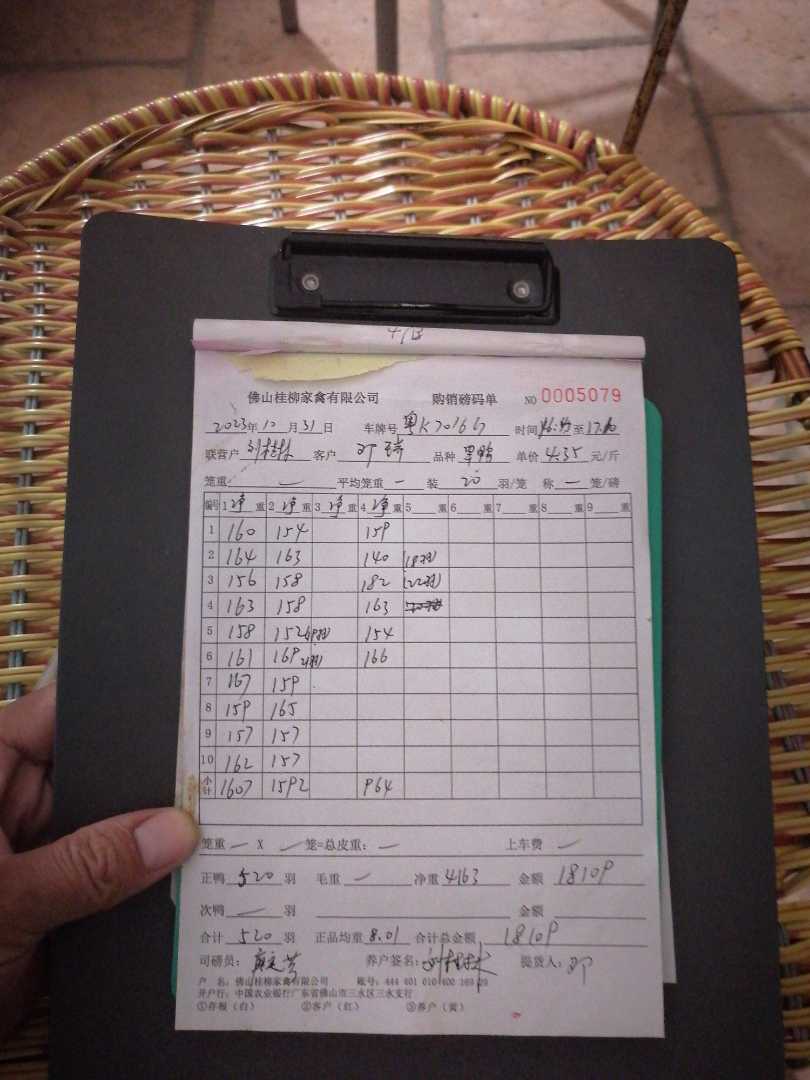 佛山桂柳家禽有限公司 购销磅码单 NO 0005079
2023年10月31日 车牌号 粤K70166 时间 至
联营户 刘桂林 客户 邓 品种 单价 4.35 元/斤
笼重 — 平均笼重 — 装 20 羽/笼 称 — 笼/磅
编号 1净重 2净重 3净重 4净重 5 重 6 重 7 重 8 重 9 重
1 160 154 159
2 164 163 140 (18羽)
3 156 158 182 (22羽)
4 163 158 163
5 158 152 (19羽) 154
6 161 169 (21羽) 166
7 167 159
8 159 165
9 157 157
10 162 157
小计 1607 1592 964
笼重 — X — 笼=总皮重: — 上车费 —
正鸭 520 羽 毛重 — 净重 4163 金额 18109
次鸭 — 羽 金额
合计 520 羽 正品均重 8.01 合计总金额 18109
司磅员: 养户签名: 刘桂林 提货人: 邓
户 名: 佛山桂柳家禽有限公司 账号: 444 601 010 400 169 29
开户行: 中国农业银行广东省佛山市三水区三水支行
①存根(白) ②客户(红) ③养户(黄)